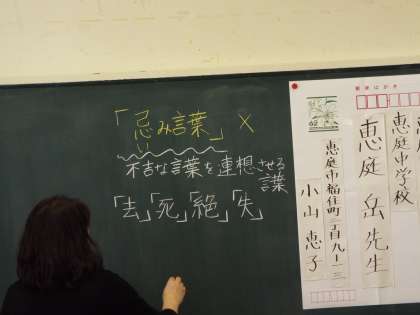 「忌み言葉」×
い
不吉な言葉を連想させる
言葉
「去」「死」「絶」「失」
郵便はがき
62
恵庭中学校
恵庭 岳先生
恵庭市福住町一丁目九ー一
小山 恵子